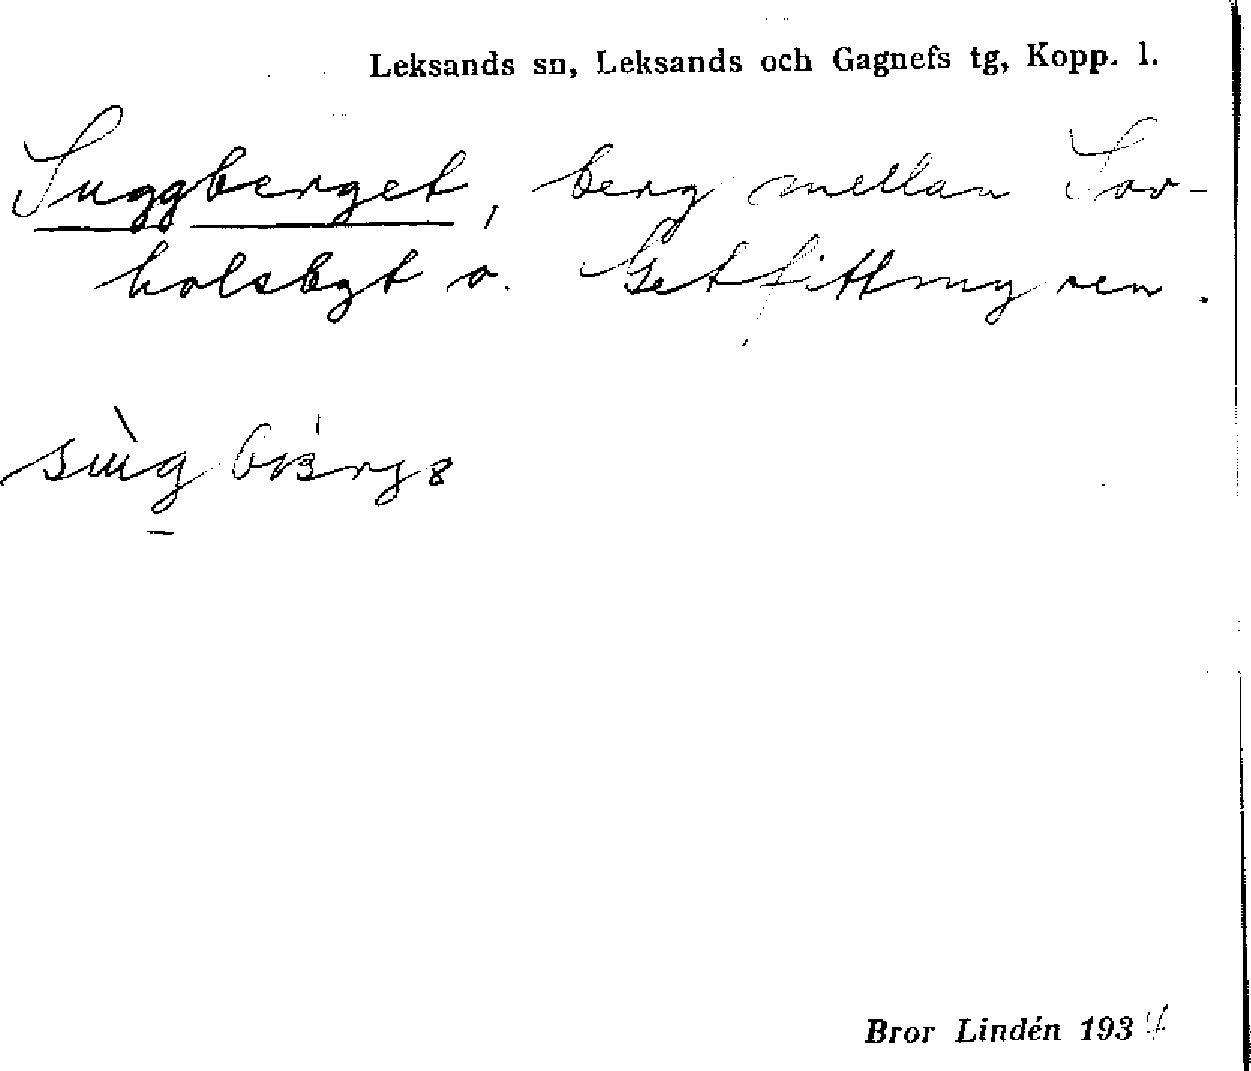 Leksands sn, Leksands och Gagnefs tg, Kopp. l.
Suggberget, berg mellan Sov-
holsbyt o. Getfittmyren.
Bror Lindén 1934